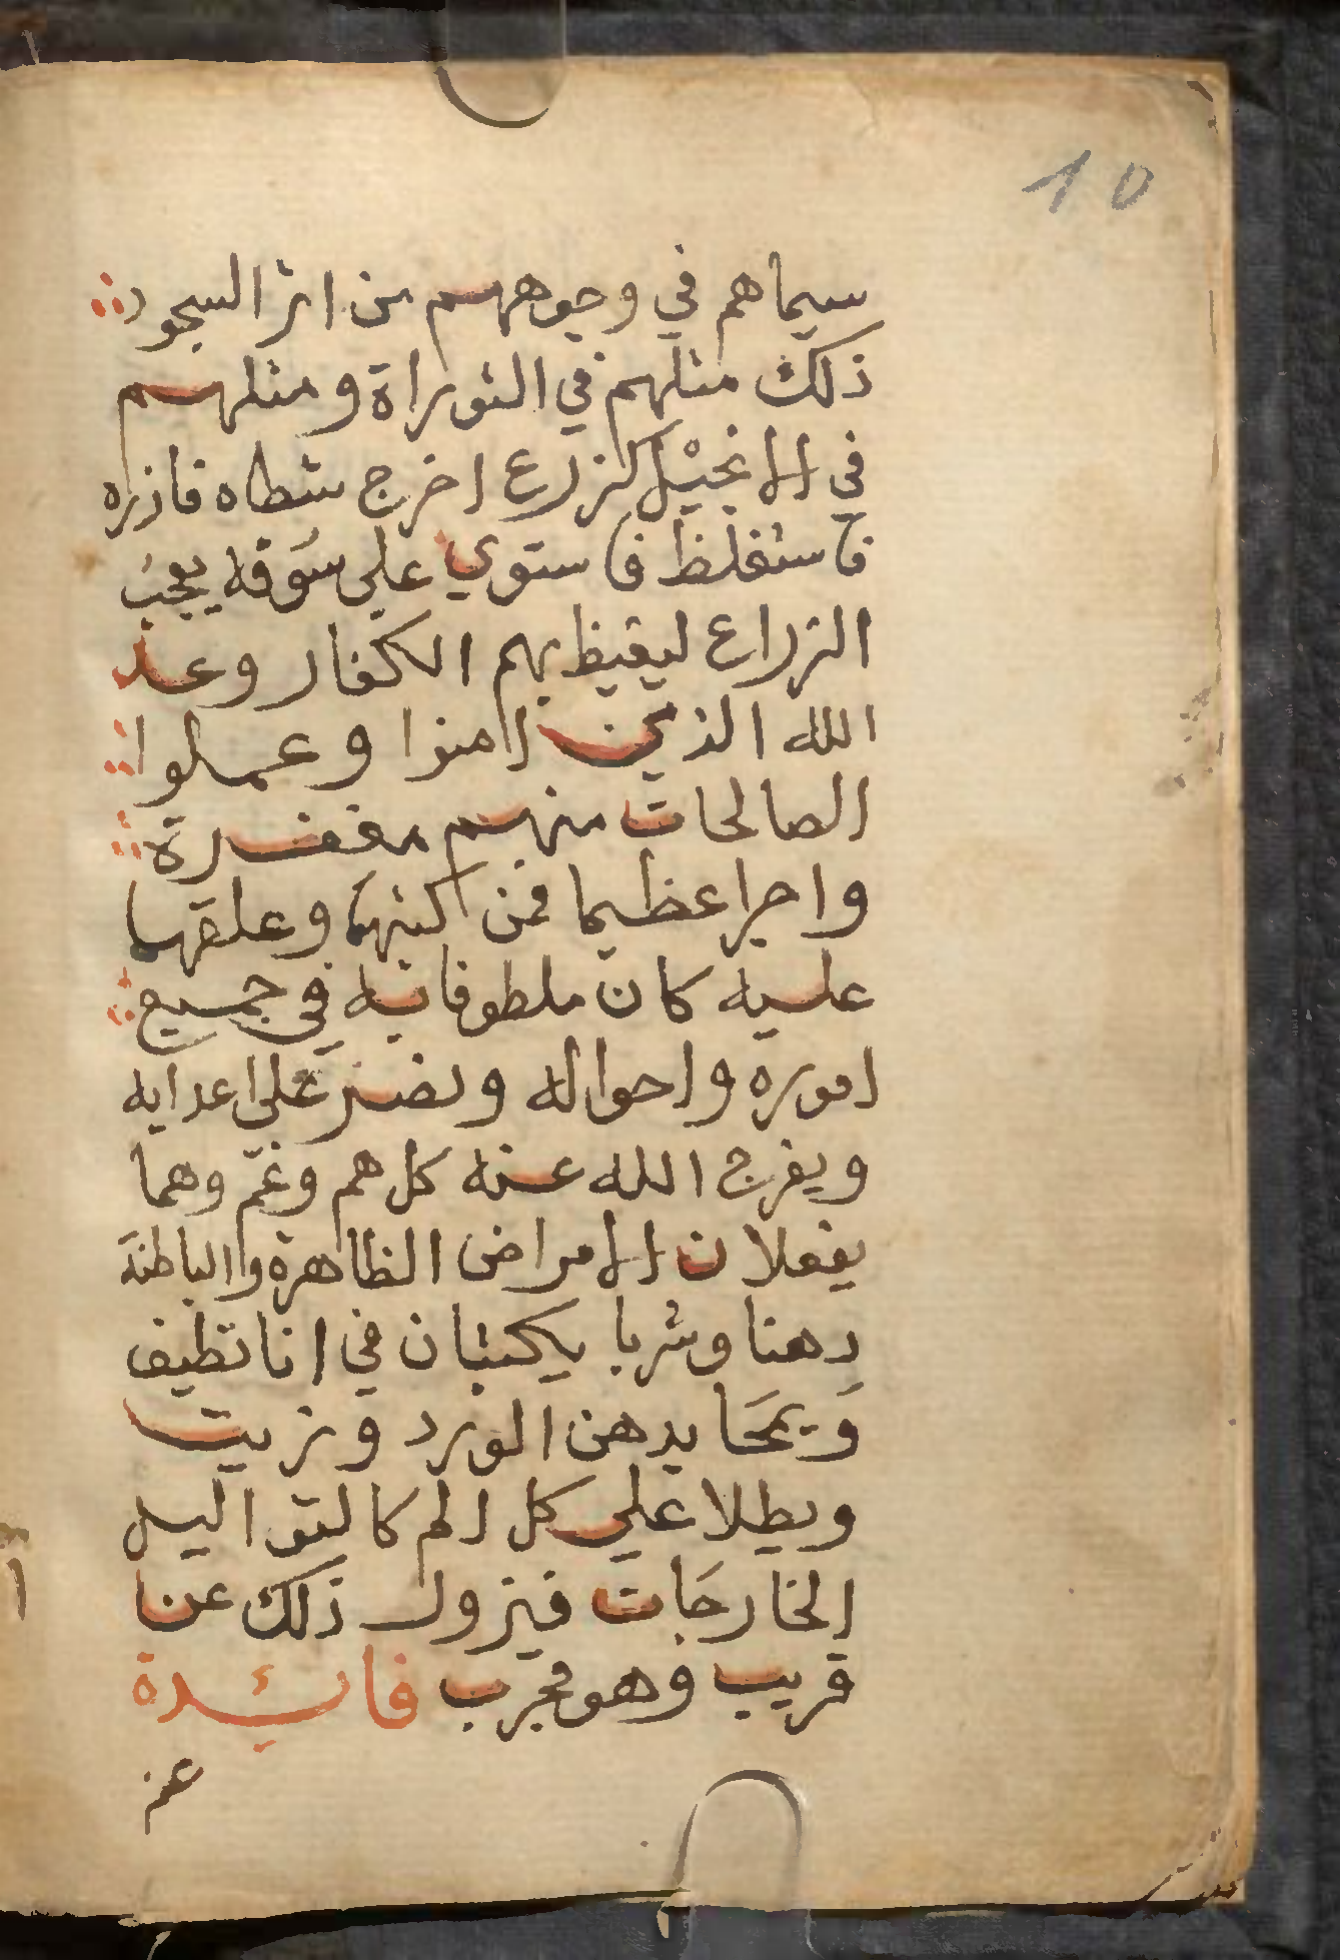 10
سيماهم في وجوههم من اثر السجود
ذلك مثلهم في التوراة ومثلهم
في الانجيْل كزرع اخرج شطاه فازره
فاستغلظ فاستوي علي سُوقه يعجبُ
الزراع ليغيظ بهم الكفار وعد
الله الذين امنوا وعملوا
الصالحات منهم مغفرة
واجرا عظيما فمن كتبهما وعلقهما
عليه كان ملطوفا به في جميع
اموره واحواله ونصر علي اعدايه
ويفرج الله عنه كل هم وغمّ وهما
يفعلان الامراض الظاهرة والباطنة
دهنا وشربا يكتبان في انا نظيف
وَيمحَا بدهن الورد وزيت
ويطلا علي كل الم كالتواليل
الخارجَات فيزول ذلك عن
قريب وهو مجرب فائدة
عز